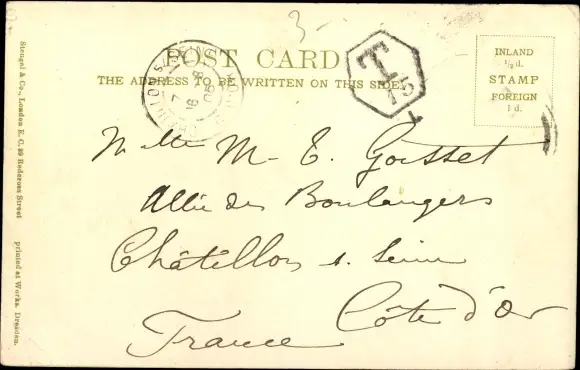 3-
POST CARD
THE ADDRESS TO BE WRITTEN ON THIS SIDE
T
15
INLAND
½ d.
STAMP
FOREIGN
1 d.
Mlle M- E. Gousset
Allée des Boulangers
Châtillon s. Seine
Côte d'Or
France
Stengel & Co., London E. C. 39 Redcross Street
printed at Works, Dresden.